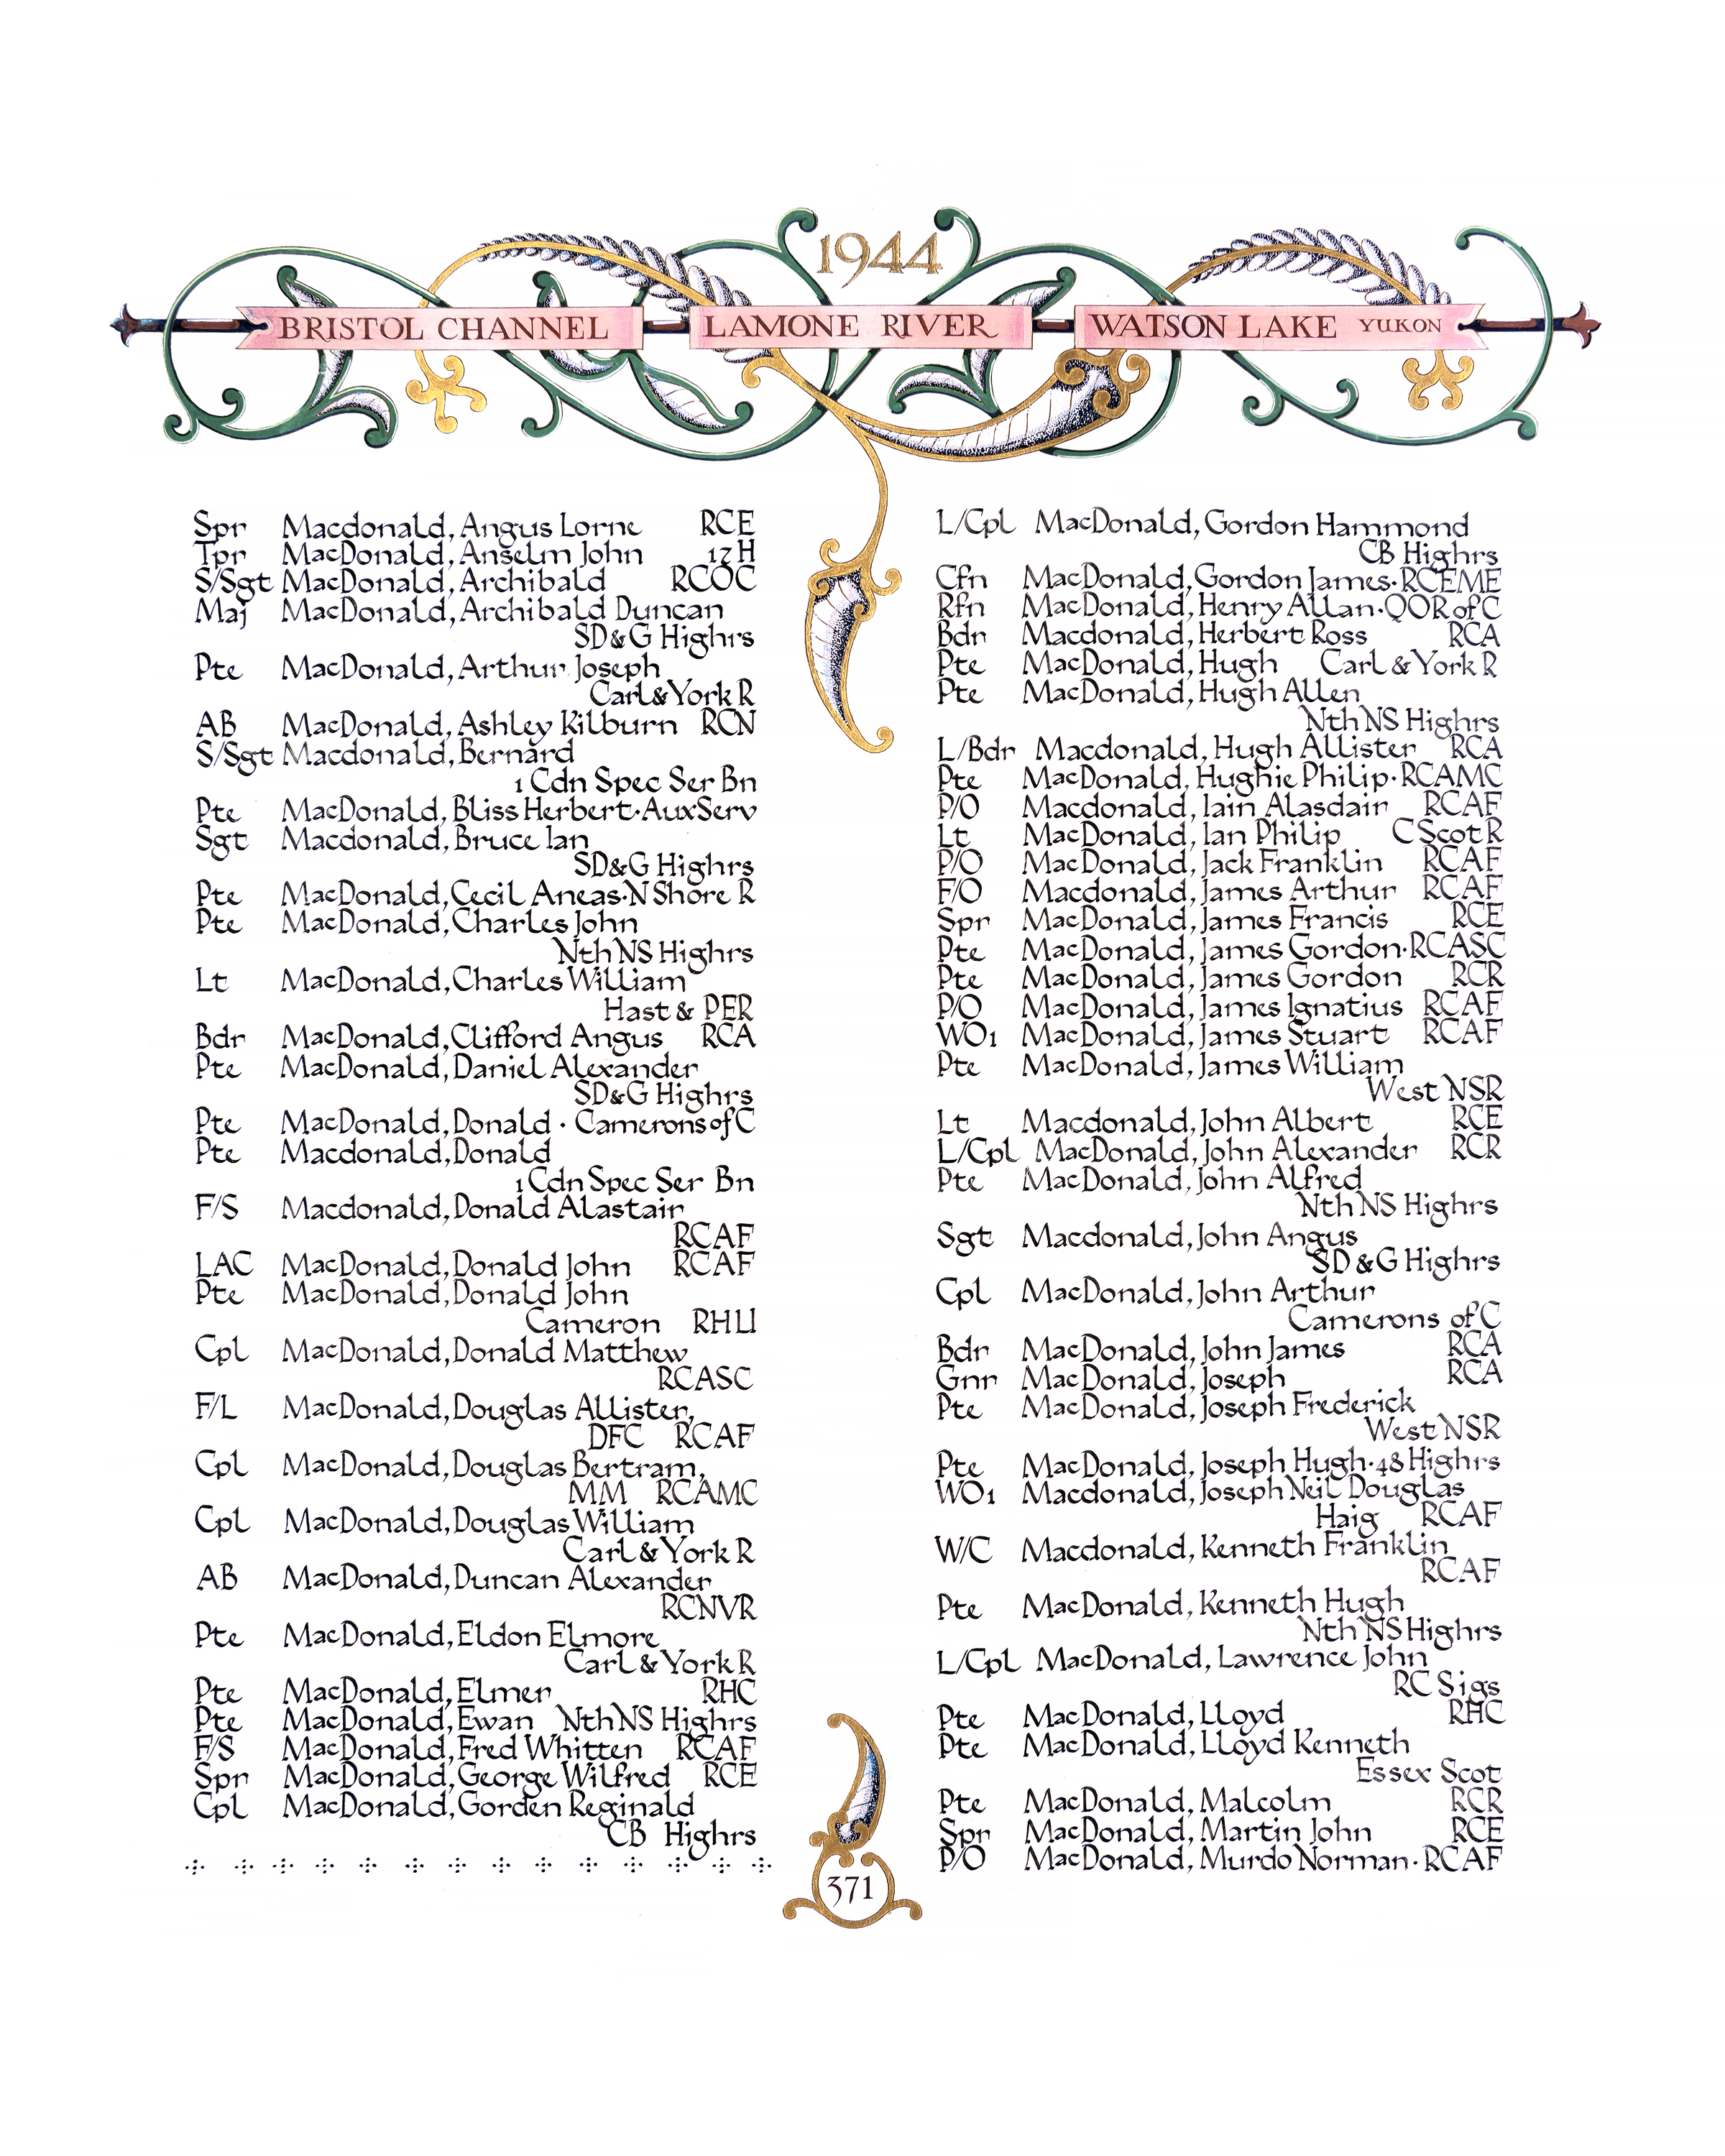 1944
BRISTOL CHANNEL LAMONE RIVER WATSON LAKE YUKON
Spr Macdonald, Angus Lorne RCE
Tpr MacDonald, Anselm John 17 H
S/Sgt MacDonald, Archibald RCOC
Maj MacDonald, Archibald Duncan
SD&G Highrs
Pte MacDonald, Arthur Joseph
Carl & York R
AB MacDonald, Ashley Kilburn RCN
S/Sgt Macdonald, Bernard
1 Cdn Spec Ser Bn
Pte MacDonald, Bliss Herbert·Aux Serv
Sgt Macdonald, Bruce Ian
SD&G Highrs
Pte MacDonald, Cecil Aneas·N Shore R
Pte MacDonald, Charles John
Nth NS Highrs
Lt MacDonald, Charles William
Hast & PER
Bdr MacDonald, Clifford Angus RCA
Pte MacDonald, Daniel Alexander
SD&G Highrs
Pte MacDonald, Donald · Camerons of C
Pte Macdonald, Donald
1 Cdn Spec Ser Bn
F/S Macdonald, Donald Alastair
RCAF
LAC MacDonald, Donald John RCAF
Pte MacDonald, Donald John
Cameron RHLI
Cpl MacDonald, Donald Matthew
RCASC
F/L MacDonald, Douglas Allister,
DFC RCAF
Cpl MacDonald, Douglas Bertram,
MM RCAMC
Cpl MacDonald, Douglas William
Carl & York R
AB MacDonald, Duncan Alexander
RCNVR
Pte MacDonald, Eldon Elmore
Carl & York R
Pte MacDonald, Elmer RHC
Pte MacDonald, Ewan Nth NS Highrs
F/S MacDonald, Fred Whitten RCAF
Spr MacDonald, George Wilfred RCE
Cpl MacDonald, Gorden Reginald
CB Highrs
L/Cpl MacDonald, Gordon Hammond
CB Highrs
Cfn MacDonald, Gordon James·RCEME
Rfn MacDonald, Henry Allan·QOR of C
Bdr Macdonald, Herbert Ross RCA
Pte MacDonald, Hugh Carl & York R
Pte MacDonald, Hugh Allen
Nth NS Highrs
L/Bdr Macdonald, Hugh Allister RCA
Pte MacDonald, Hughie Philip·RCAMC
P/O Macdonald, Iain Alasdair RCAF
Lt MacDonald, Ian Philip C Scot R
P/O MacDonald, Jack Franklin RCAF
F/O Macdonald, James Arthur RCAF
Spr MacDonald, James Francis RCE
Pte MacDonald, James Gordon·RCASC
Pte MacDonald, James Gordon RCR
P/O MacDonald, James Ignatius RCAF
WO1 MacDonald, James Stuart RCAF
Pte MacDonald, James William
West NSR
Lt Macdonald, John Albert RCE
L/Cpl MacDonald, John Alexander RCR
Pte MacDonald, John Alfred
Nth NS Highrs
Sgt Macdonald, John Angus
SD & G Highrs
Cpl MacDonald, John Arthur
Camerons of C
Bdr MacDonald, John James RCA
Gnr MacDonald, Joseph RCA
Pte MacDonald, Joseph Frederick
West NSR
Pte MacDonald, Joseph Hugh·48 Highrs
WO1 Macdonald, Joseph Neil Douglas
Haig RCAF
W/C Macdonald, Kenneth Franklin
RCAF
Pte MacDonald, Kenneth Hugh
Nth NS Highrs
L/Cpl MacDonald, Lawrence John
RC Sigs
Pte MacDonald, Lloyd RHC
Pte MacDonald, Lloyd Kenneth
Essex Scot
Pte MacDonald, Malcolm RCR
Spr MacDonald, Martin John RCE
P/O MacDonald, Murdo Norman·RCAF
371